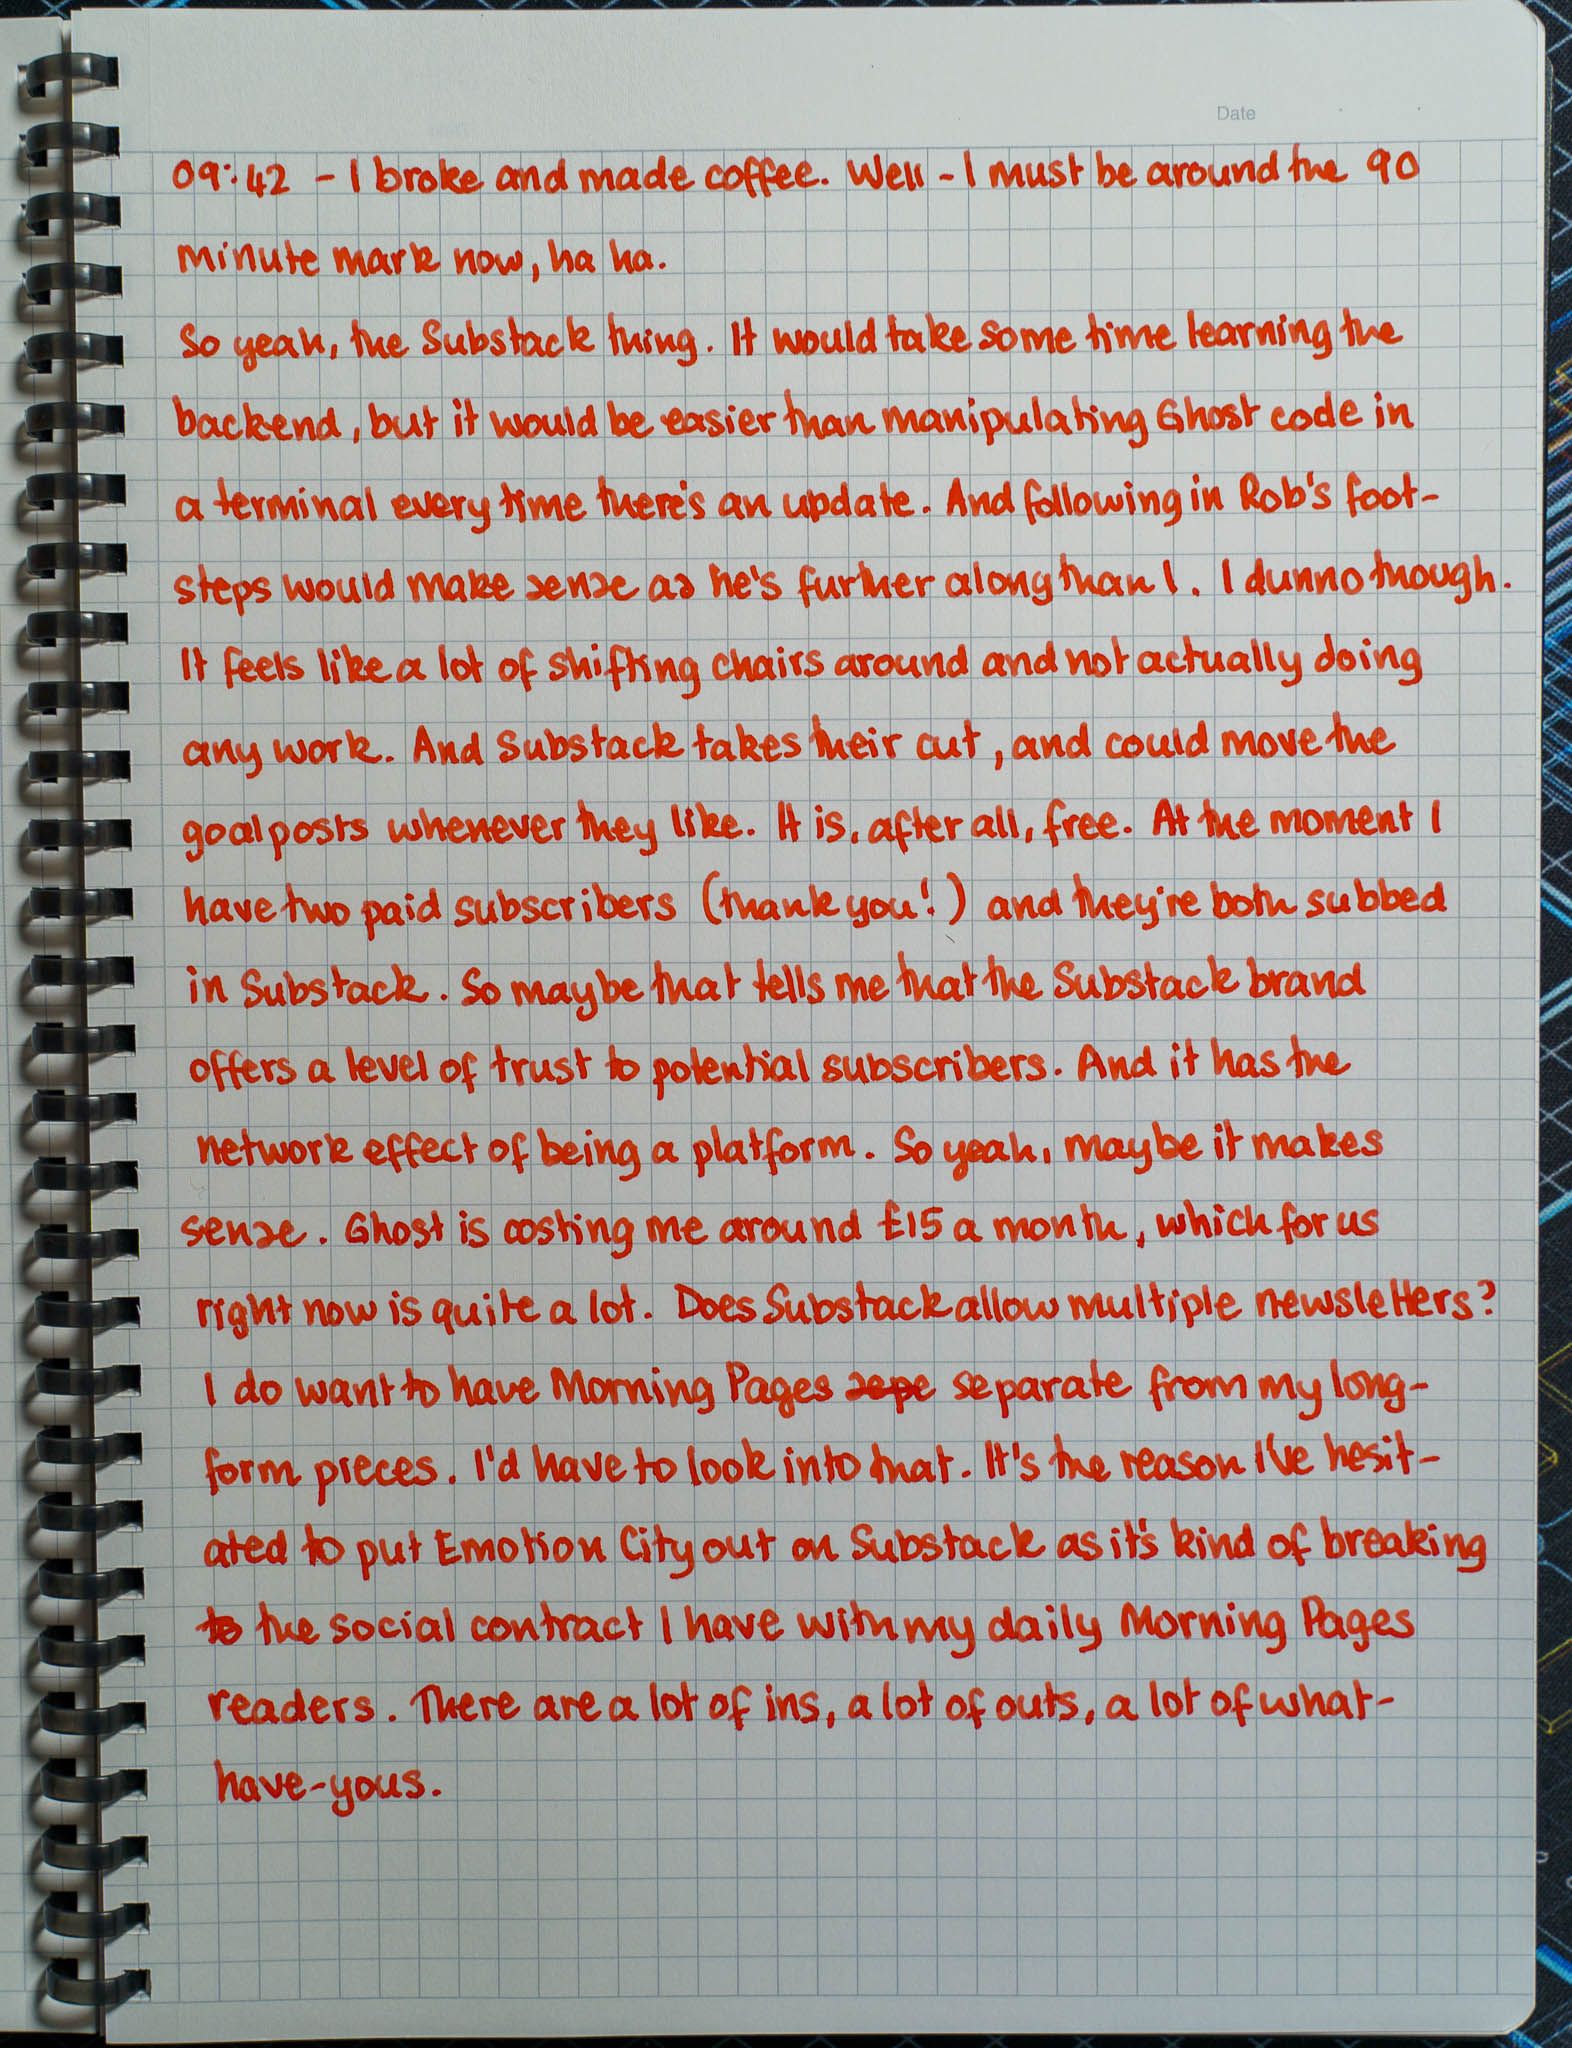 Date
09:42 - I broke and made coffee. Well - I must be around the 90
minute mark now, ha ha.
So yeah, the Substack thing. It would take some time learning the
backend, but it would be easier than manipulating Ghost code in
a terminal every time there's an update. And following in Rob's foot-
steps would make sense as he's further along than I. I dunno though.
It feels like a lot of shifting chairs around and not actually doing
any work. And Substack takes their cut, and could move the
goalposts whenever they like. It is, after all, free. At the moment I
have two paid subscribers (thank you!) and they're both subbed
in Substack. So maybe that tells me that the Substack brand
offers a level of trust to potential subscribers. And it has the
network effect of being a platform. So yeah, maybe it makes
sense. Ghost is costing me around £15 a month, which for us
right now is quite a lot. Does Substack allow multiple newsletters?
I do want to have Morning Pages sepe separate from my long-
form pieces. I'd have to look into that. It's the reason I've hesit-
ated to put Emotion City out on Substack as it's kind of breaking
to the social contract I have with my daily Morning Pages
readers. There are a lot of ins, a lot of outs, a lot of what-
have-yous.